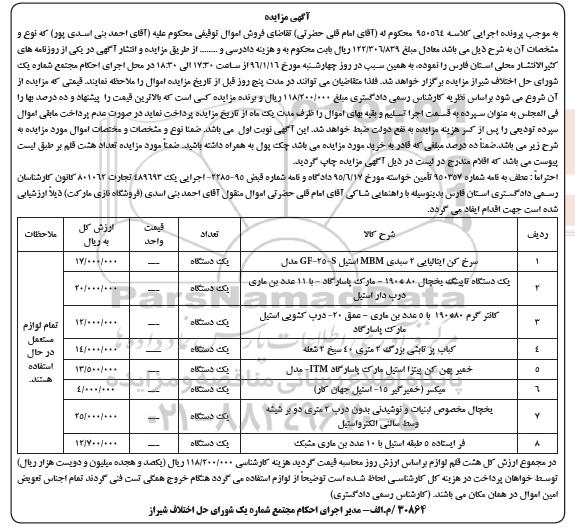 آگهی مزایده
به موجب پرونده اجرایی کلاسه ۹۵۰۵۶۴ محکوم له (آقای امام قلی حضرتی) تقاضای فروش اموال توقیفی محکوم علیه (آقای احمد بنی اسدی پور) که نوع و
مشخصات آن به شرح ذیل می باشد معادل مبلغ ۱۲۲/۳۰۶/۸۳۹ ریال بابت محکوم به و هزینه دادرسی و ........ از طریق مزایده و انتشار آگهی در یکی از روزنامه های
کثیرالانتشار محلی استان فارس را نموده، به همین سبب در روز چهارشنبه مورخ ۹۶/۱/۱۶ از ساعت ۱۷:۳۰ الی ۱۸:۳۰ در محل اجرای احکام مجتمع شماره یک
شورای حل اختلاف شیراز مزایده برگزار خواهد شد. فلذا متقاضیان می توانند در مدت پنج روز قبل از تاریخ مزایده اموال را ملاحظه نمایند. قیمتی که مزایده از
آن شروع می شود براساس نظریه کارشناس رسمی دادگستری مبلغ ۱۱۸/۲۰۰/۰۰۰ ریال و برنده مزایده کسی است که بالاترین قیمت را پیشنهاد و ده درصد بها را
فی المجلس به عنوان سپرده به قسمت اجرا تسلیم و بقیه بهای اموال را ظرف مدت یک ماه از تاریخ مزایده پرداخت نماید در صورت عدم پرداخت مابقی اموال
سپرده تودیعی را پس از کسر هزینه مزایده به نفع دولت ضبط خواهد شد. این آگهی نوبت اول می باشد. ضمنا نوع و مشخصات و مختصات اموال مورد مزایده به
شرح زیر می باشد.ضمناً ده درصد مبلغی که قادر به خرید مورد مزایده می باشد چک پول به همراه داشته باشید. ضمناً مورد مزایده تعداد هشت قلم بر طبق لیست
پیوست می باشد که اقلام مندرج در لیست در ذیل آگهی مزایده چاپ گردید.
احتراماً : عطف به نامه شماره ۹۵۰۳۵۷ تأمین خواسته مورخ ۹۵/۶/۱۷ دادگاه و نامه شماره قبض ۹۵-۲۲۸۵ اجرایی یک ۴۸۶۹۳ تجارت ۸۰۱۰۶۲ کانون کارشناسان
رسمی دادگستری استان فارس بدینوسیله با راهنمایی شاکی آقای امام قلی حضرتی اموال منقول آقای احمد بنی اسدی (فروشگاه نازی مارکت) ذیلاً ارزشیابی
شده است جهت اقدام ایفاد می گردد.
ردیف شرح کالا تعداد قیمت واحد ارزش کل به ریال ملاحظات
۱ سرخ کن ایتالیایی ۲ سبدی MBM استیل GF-۲۵-S مدل یک دستگاه ـــ ۱۷/۰۰۰/۰۰۰
۲ یک دستگاه تاپینگ یخچال ۸۰*۱۹۰ - مارک پاسارگاد - با ۱۱ عدد بن ماری درب دار استیل یک دستگاه ـــ ۲۰/۰۰۰/۰۰۰
۳ کانتر گرم ۸۰*۱۹۰ با ۵ عدد بن ماری - عمق ۲۰- درب کشویی استیل مارک پاسارگاد یک دستگاه ـــ ۱۲/۰۰۰/۰۰۰
۴ کباب پز تابشی بزرگ ۲ متری ۴۰ سیخ ۲ شعله یک دستگاه ـــ ۱۴/۰۰۰/۰۰۰
۵ خمیر پهن کن پیتزا استیل مارک پاسارگاد ITM- مدل یک دستگاه ـــ ۱۳/۵۰۰/۰۰۰
۶ میکسر (خمیرگیر ۱۵- استیل جهان کار) یک دستگاه ـــ ۴/۰۰۰/۰۰۰
۷ یخچال مخصوص لبنیات و نوشیدنی بدون درب ۲ متری دو بر شیشه وسط سالنی الکترواستیل یک دستگاه ـــ ۲۵/۰۰۰/۰۰۰
۸ فر ایستاده ۵ طبقه استیل با ۱۰ عدد بن ماری مشبک یک دستگاه ـــ ۱۲/۷۰۰/۰۰۰
تمام لوازم
مستعمل
در حال
استفاده
هستند.
در مجموع ارزش کل هشت قلم لوازم براساس ارزش روز محاسبه قیمت گردید هزینه کارشناسی ۱۱۸/۲۰۰/۰۰۰ ریال (یکصد و هجده میلیون و دویست هزار ریال)
توسط خواهان پرداخت در هزینه کل کارشناسی لحاظ شده است توضیحاً از لوازم استفاده می گردد هنگام خروج همگی تست فنی گردند تمام اجناس تعویض
امین اموال در همان مکان می باشند. (کارشناس رسمی دادگستری)
۳۰۸۶۴ /م.الف- مدیر اجرای احکام مجتمع شماره یک شورای حل اختلاف شیراز
ParsNamadData
۰۲۱-۸۸۳۴۹۶۷۰